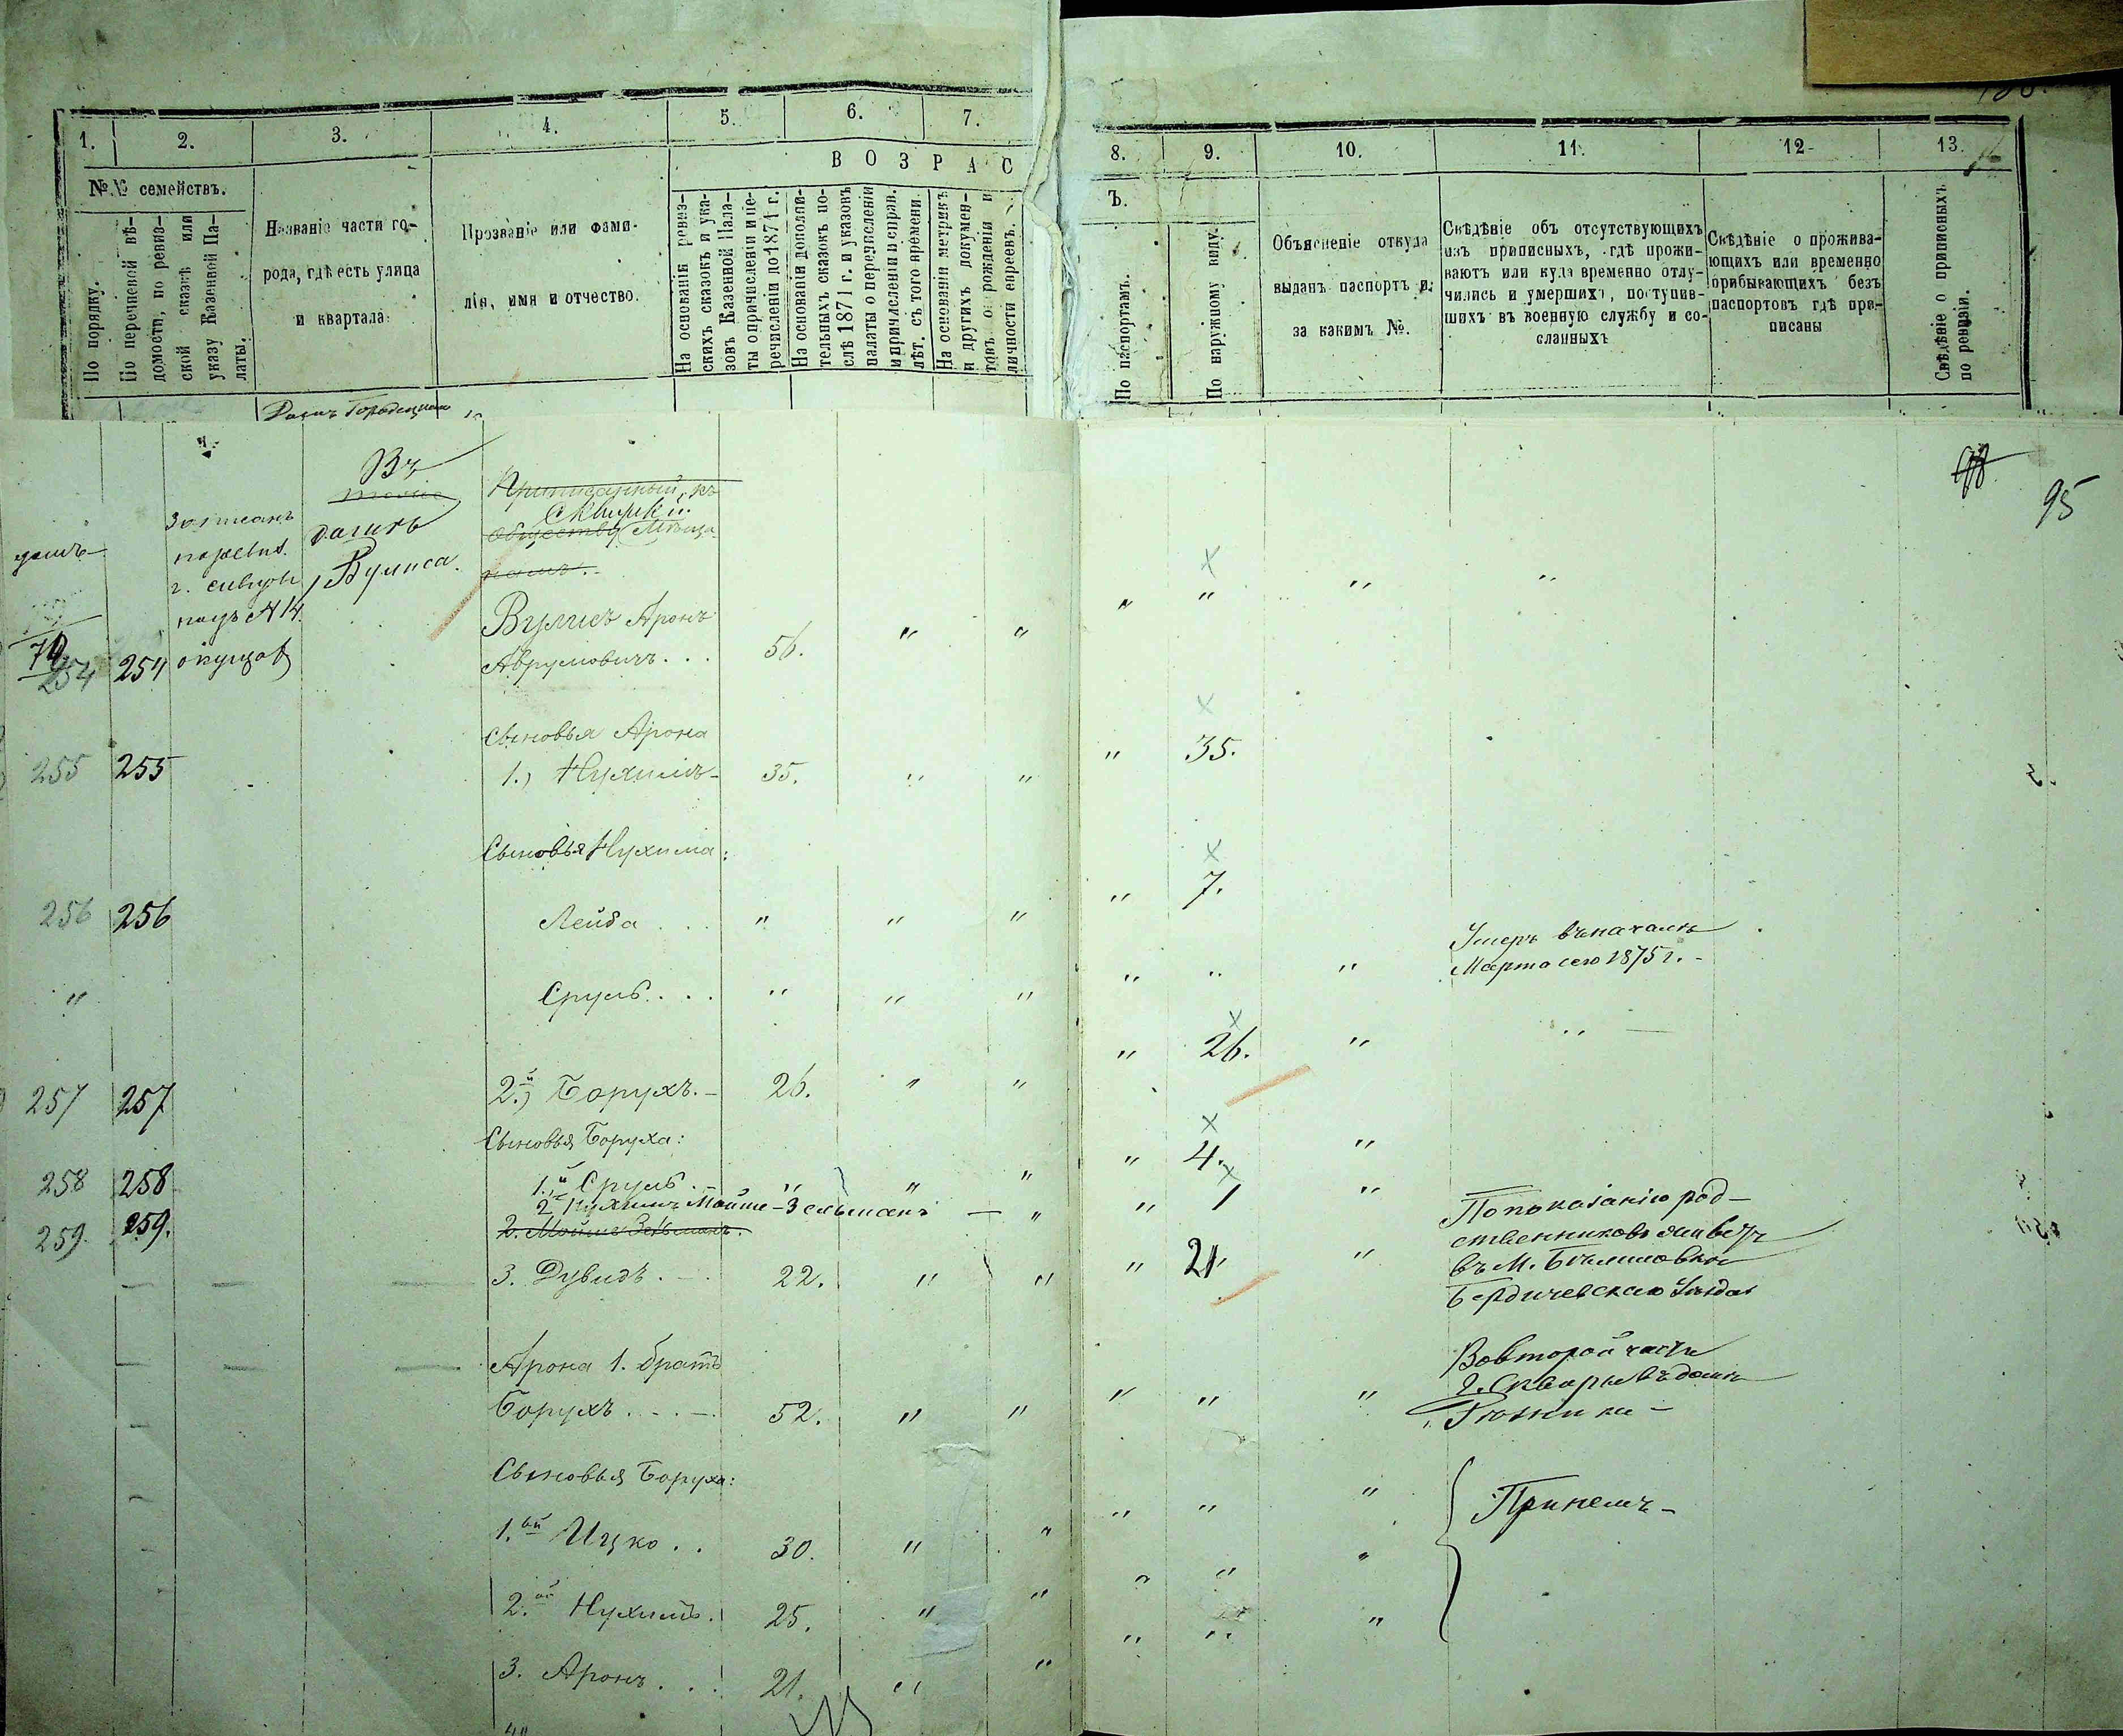 1. 2. 3. 4. 5. 6. 7.
№№ семействъ.
По порядку.
По перечневой вѣ-
домости, по ревиз-
ской сказкѣ или
указу Казенной Па-
латы.
Названіе части го-
рода, гдѣ есть улица
и квартала
Прозваніе или фами-
лія, имя и отчество.
В О З Р А С
На основаніи ревиз-
скихъ сказокъ и ука-
зовъ Казенной Пала-
ты о причисленіи и пе-
речисленіи до 1871 г.
На основаніи дополни-
тельныхъ сказокъ по-
слѣ 1871 г. и указовъ
палаты о перечисленіи
и причисленіи и справ.
лѣт. съ того времени.
На основаніи метрикъ
и другихъ докумен-
товъ о рожденіи и
личности евреевъ.
8. 9. 10. 11. 12 13.
Ъ.
По паспортамъ.
По наружному виду.
Объясненіе откуда
выданъ паспортъ и
за какимъ №.
Свѣдѣніе объ отсутствующихъ
изъ приписныхъ, гдѣ прожи-
ваютъ или куда временно отлу-
чились и умершихъ, поступив-
шихъ въ военную службу и со-
сланныхъ
Свѣдѣніе о прожива-
ющихъ или временно
прибывающихъ безъ
паспортовъ гдѣ при-
писаны
Свѣдѣніе о приписныхъ
по ревизіи.
Домъ Городецкаго
98
95
Въ
Приписанный къ
Сквирск
Обществу Мѣща
Записанъ
г. Сквиры
подъ № 14.
Вулиса.
Вулисъ Аронъ
254 254 Аврумовичъ . . . 56. " " " "
Сыновья Арона
255 255 1.) Нухимъ - 35. " " " 35.
Сыновья Нухима:
256 256 Лейба . . . " " " " 7.
" Сруль . . . " " " " " "
Умеръ въ началѣ
Марта сего 1875 г. -
257 257 2.й) Борухъ. - 26. " " " 26. "
Сыновья Боруха:
258 258 1.й Сруль " " " " 4. "
259. 259. 2 Нухимъ Мойше-Зельманъ — " " 1 "
2. Мойше Зельманъ.
3. Дувидъ . - . 22. " " " 21 "
По показанію род-
ственниковъ живетъ
въ М. Бѣлиловкѣ
Бердичевскаго Уѣзда
Арона 1. братъ
Борухъ . . . 52. " " " " "
Во второй части
г. Сквиры въ домѣ
Сыновья Боруха:
1.ый Ицко . . 30. " " " " "
При немъ -
2.ой Нухимъ. 25. " " " " "
3. Аронъ . . . 21. " " " " "